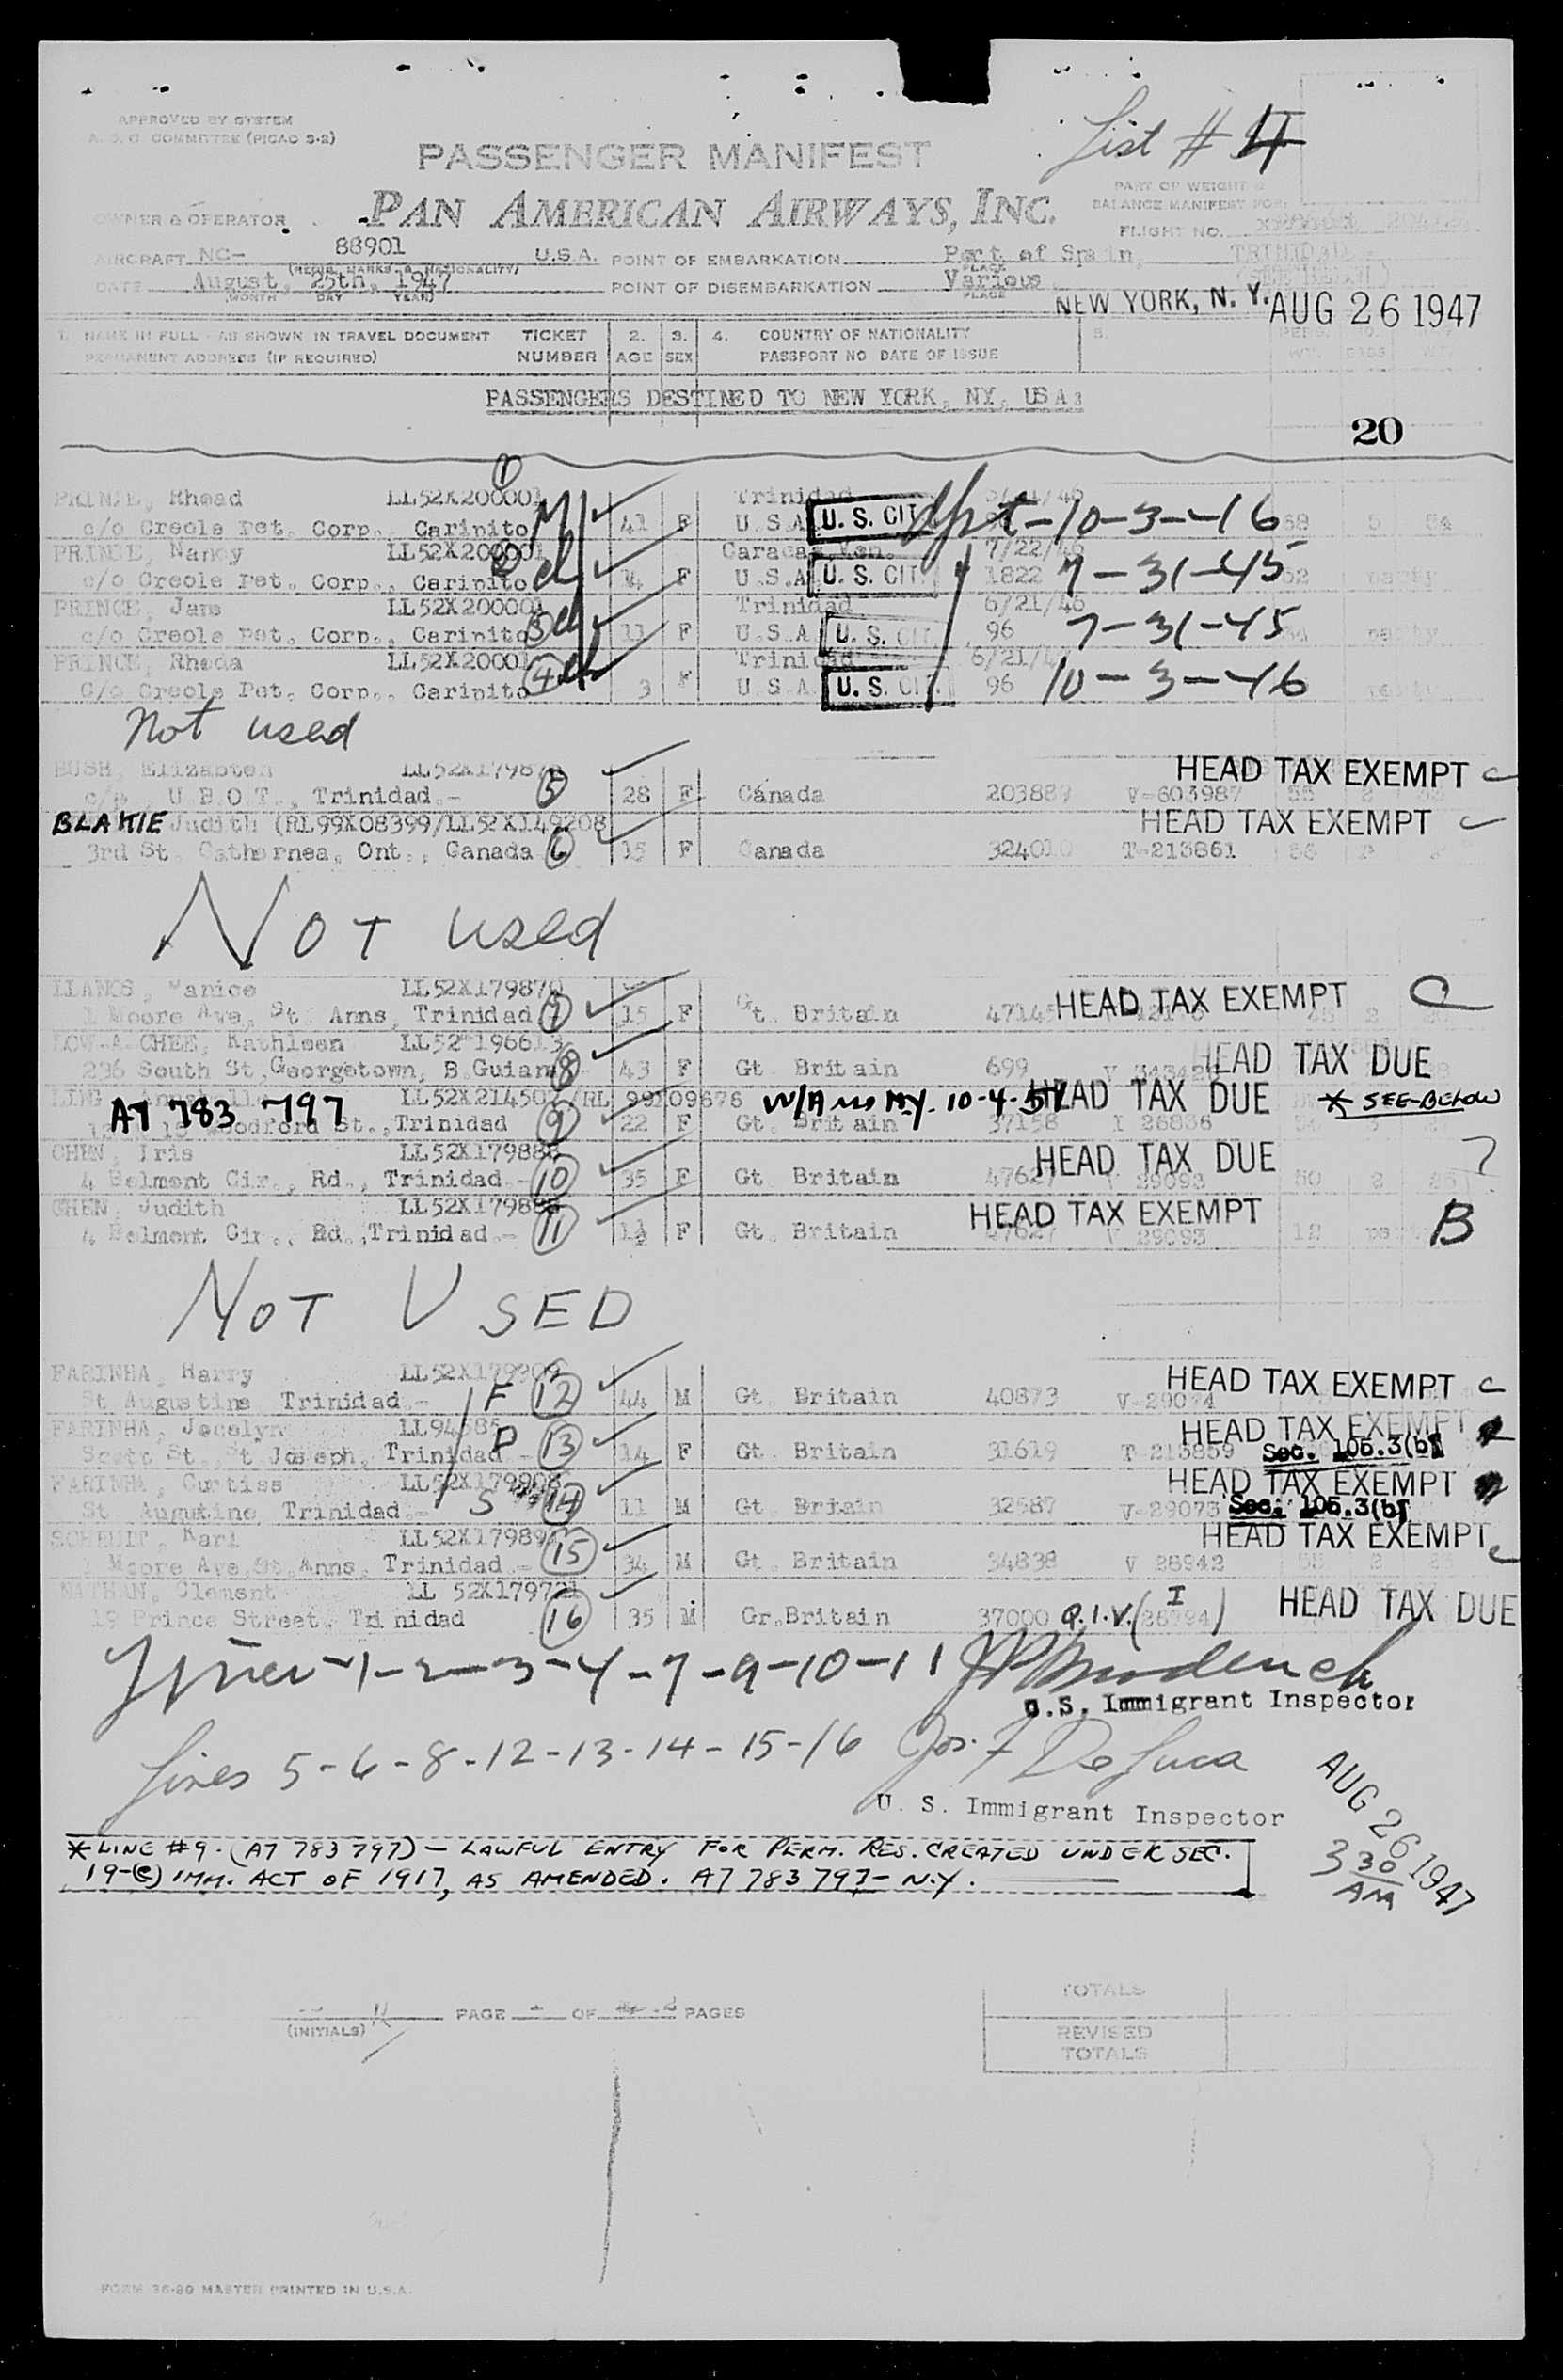 APPROVED BY SYSTEM
A. S. O. COMMITTEE (PICAO S-2)
List # 4
PASSENGER MANIFEST
PART OF WEIGHT &
BALANCE MANIFEST FOR:
OWNER & OPERATOR PAN AMERICAN AIRWAYS, INC.
FLIGHT NO.
AIRCRAFT NC- 88901 U.S.A. POINT OF EMBARKATION Port of Spain, TRINIDAD -
(REGIS. MARKS & NATIONALITY) PLACE
DATE August, 25th, 1947 POINT OF DISEMBARKATION Various
(MONTH DAY YEAR) PLACE
NEW YORK, N. Y. AUG 26 1947
1. NAME IN FULL - AS SHOWN IN TRAVEL DOCUMENT TICKET 2. 3. 4. COUNTRY OF NATIONALITY 5.
PERMANENT ADDRESS (IF REQUIRED) NUMBER AGE SEX PASSPORT NO DATE OF ISSUE
PASSENGERS DESTINED TO NEW YORK, NY, USA:
20
1
PRINCE, Rhead LL52X200001 M Trinidad 6/21/46
c/o Creole Pet. Corp., Caripito 41 F U.S.A. U. S. CIT. 10-3-46
PRINCE, Nancy LL52X200001 Caracas, Ven. 7/22/46
c/o Creole Pet. Corp., Caripito 2 ch 14 F U.S.A U. S. CIT. 1822 7-31-45
PRINCE, Jane LL52X200001 Trinidad 6/21/46
c/o Creole Pet. Corp., Caripito 3 ch 11 F U.S.A. U. S. CIT. 96 7-31-45
PRINCE, Rheda LL52X20001 Trinidad 6/21/
C/o Creole Pet. Corp., Caripito 4 ch 3 F U.S.A. U. S. CIT. 96 10-3-46
Not used
BUSH, Elizabteh LL52X17987 HEAD TAX EXEMPT C
U.B.O.T., Trinidad.- 5 28 F Canada 203889 V-603987
BLAKIE Judith (RL99X08399/LL52X149208 HEAD TAX EXEMPT C
3rd St. Catharnea, Ont., Canada 6 15 F Canada 324010 T-213861
NOT used
LLANOS, Janice LL52X179870
1 Moore Ave, St. Anns, Trinidad 7 15 F Gt. Britain 47145 HEAD TAX EXEMPT C
LOW-A-CHEE, Kathleen LL52 196613
236 South St, Georgetown, B.Guiana 8 43 F Gt Britain 699 HEAD TAX DUE
LL52X214507/RL 99X09676 W/A no N.Y. 10-4-51 HEAD TAX DUE * SEE-BELOW
A7 783 797 Woodford St., Trinidad 9 22 F Gt. Britain 37158 I 26836
CHEN, Iris LL52X179888
4 Belmont Cir., Rd., Trinidad 10 35 F Gt. Britain 47627 V 29092 HEAD TAX DUE ?
CHEN, Judith LL52X179888 HEAD TAX EXEMPT B
4 Belmont Cir., Rd., Trinidad.- 11 1½ F Gt. Britain 47627 V 29093 12
NOT USED
FARINHA, Harry LL52X179909 HEAD TAX EXEMPT C
St Augustine Trinidad.- F 12 44 M Gt. Britain 40873 V-29074
FARINHA, Jocelyn LL94685 HEAD TAX EXEMPT
Scott St., St Joseph, Trinidad P 13 14 F Gt. Britain 31619 T 213859 Sec. 105.3(b)
FARINHA, Curtiss LL52X179908 HEAD TAX EXEMPT
St Augustine, Trinidad.- S 14 11 M Gt Britain 32687 V-29073 Sec. 105.3(b)
SCHEUIT, Karl LL52X17989 HEAD TAX EXEMPT C
1 Moore Ave, St. Anns, Trinidad 15 34 M Gt. Britain 34838 V 28942
NATHAN, Clement LL 52X179721
19 Prince Street, Trinidad 16 35 M Gr.Britain 37000 Q.I.V. (I 26794) HEAD TAX DUE
Lines -1-2-3-4-7-9-10-11
U.S. Immigrant Inspector
Lines 5-6-8-12-13-14-15-16 Jos. F De Luca
U. S. Immigrant Inspector
AUG 26 1947
3 30 AM
* LINE #9. (A7 783 797) - LAWFUL ENTRY FOR PERM. RES. CREATED UNDER SEC.
19-(c) IMM. ACT OF 1917, AS AMENDED. A7 783 797 - N.Y.
(INITIALS) PAGE OF PAGES
TOTALS
REVISED
TOTALS
FORM 36-80 MASTER PRINTED IN U.S.A.